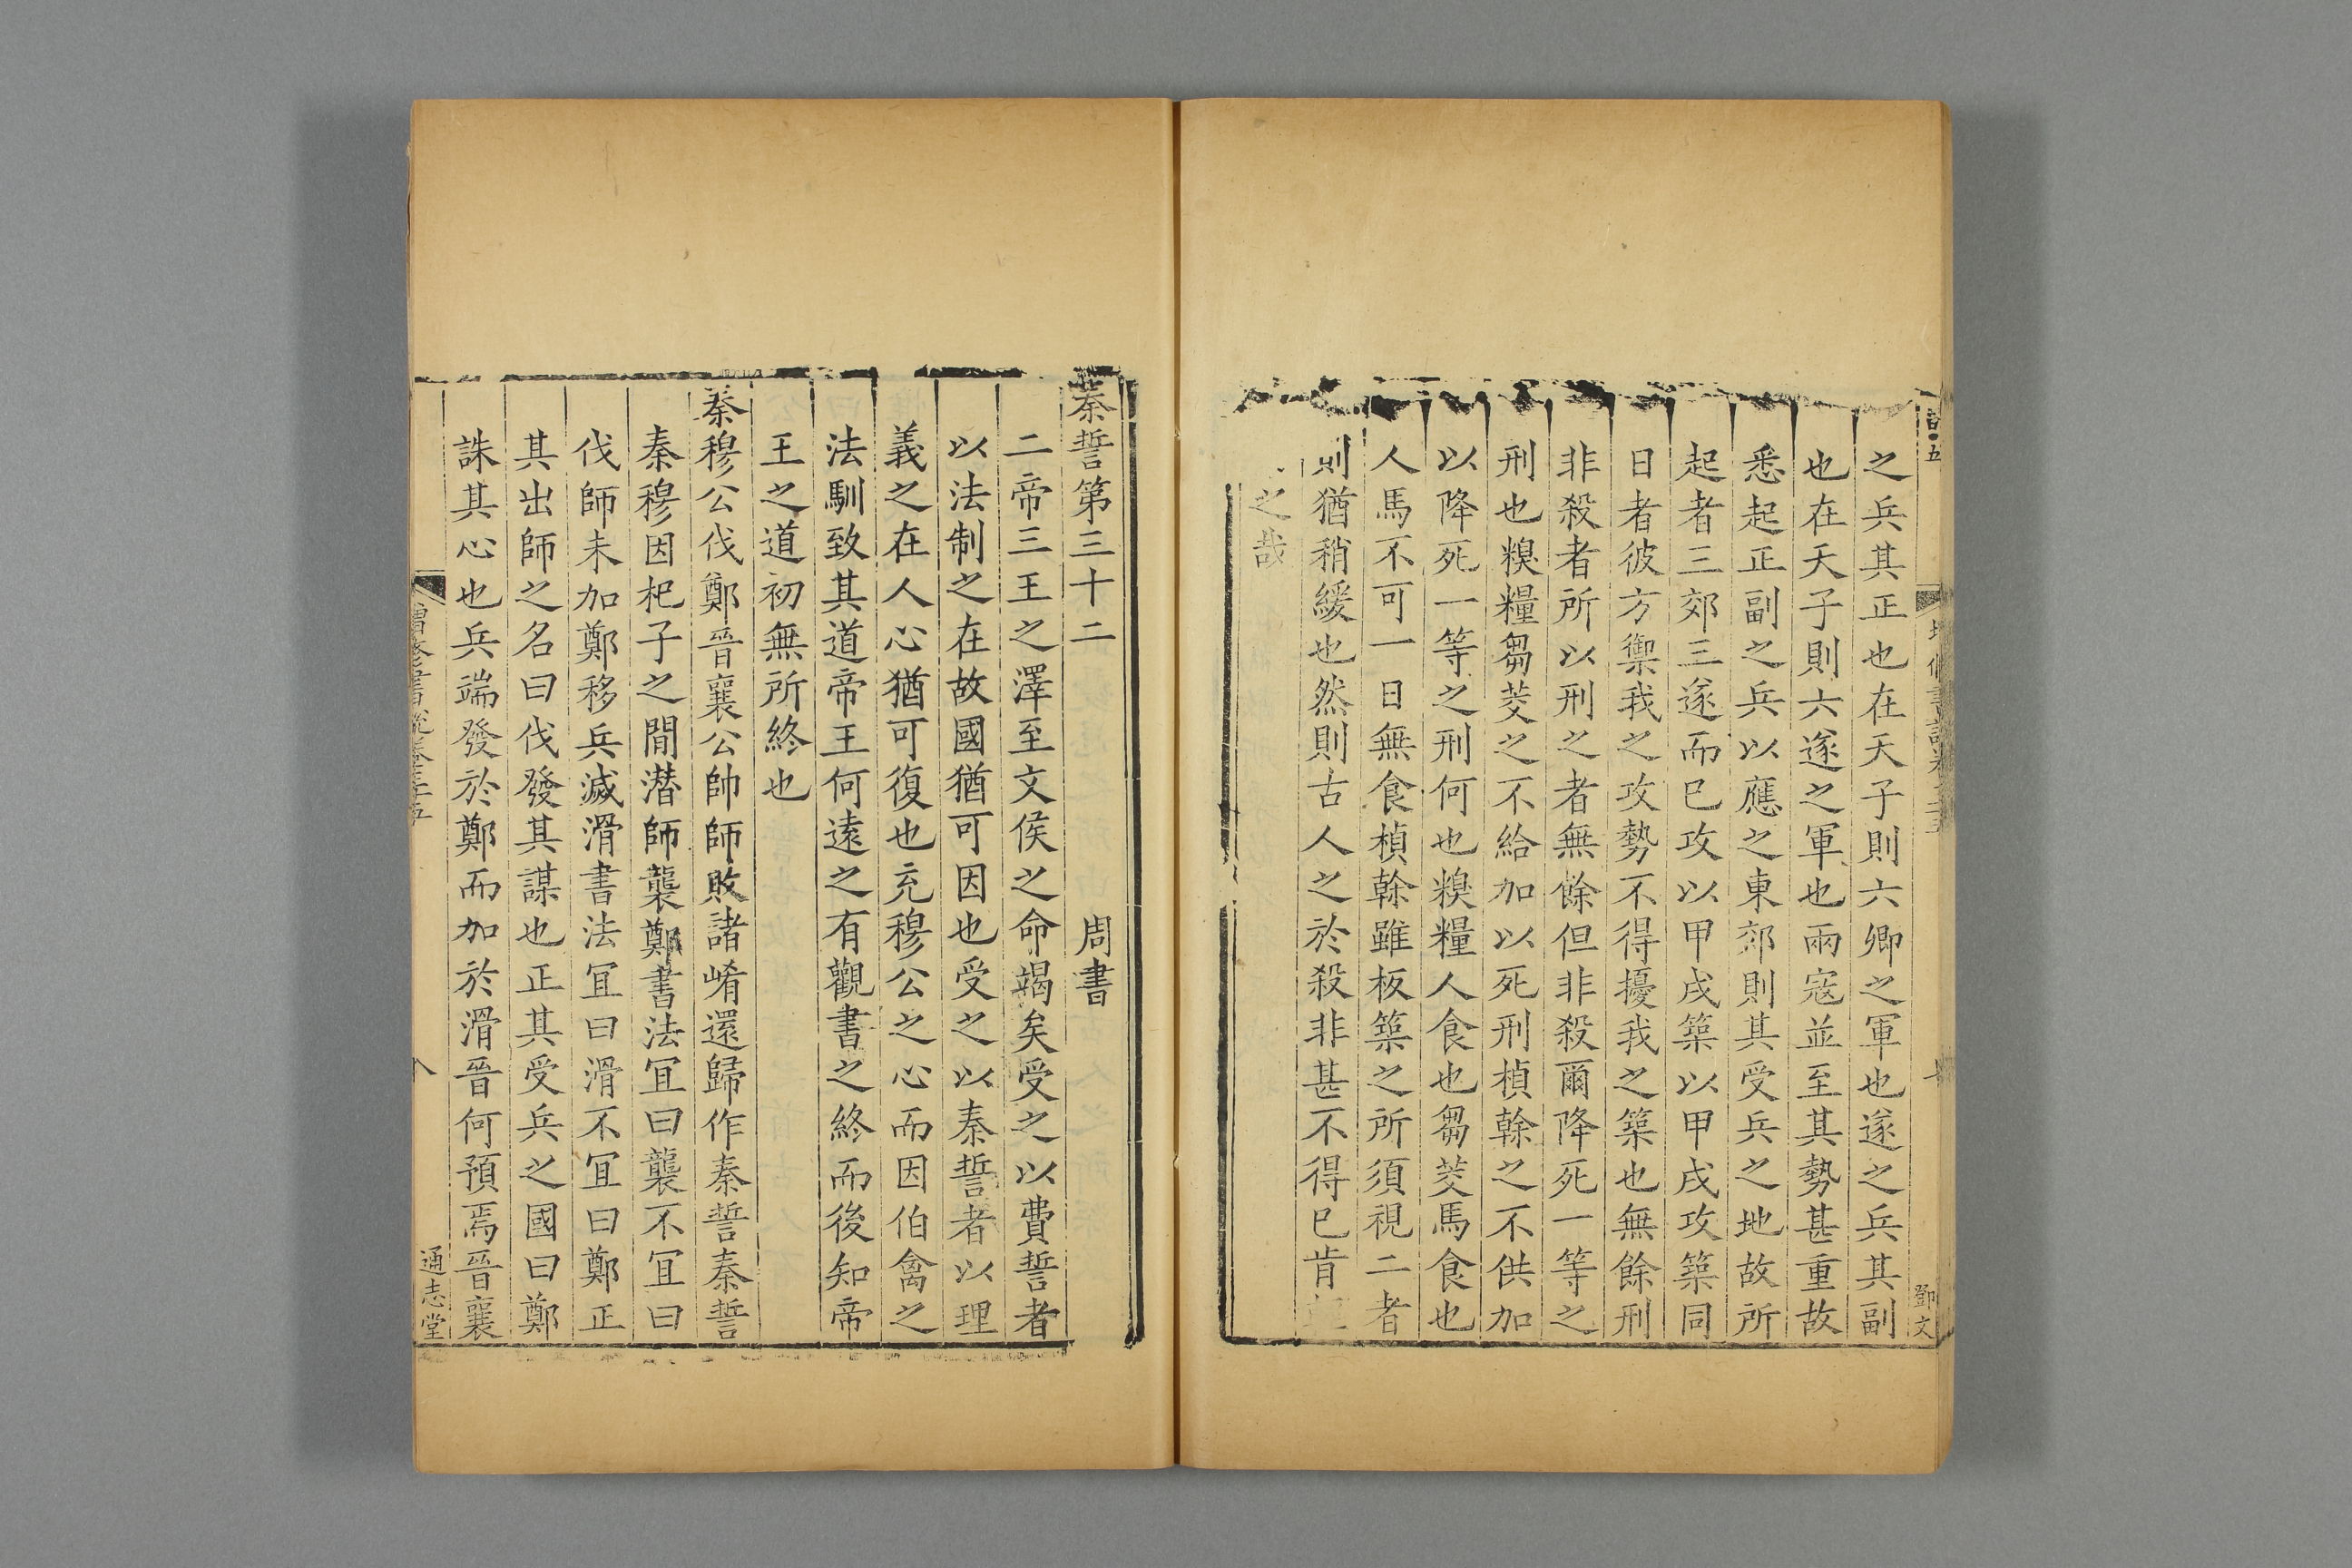 之兵其正也在天子則六卿之軍也遂之兵其副
也在天子則六遂之軍也兩寇並至其勢甚重故
悉起正副之兵以應之東郊則其受兵之地故所
起者三郊三遂而已攻以甲戌築以甲戌攻築同
日者彼方禦我之攻勢不得擾我之築也無餘刑
非殺者所以刑之者無餘但非殺爾降死一等之
刑也糗糧芻茭之不給加以死刑楨榦之不供加
以降死一等之刑何也糗糧人食也芻茭馬食也
人馬不可一日無食楨榦雖板築之所須視二者
則猶稍緩也然則古人之於殺非甚不得已肯
之哉
鄧文
秦誓第三十二 周書
二帝三王之澤至文侯之命竭矣受之以費誓者
以法制之在故國猶可因也受之以秦誓者以理
義之在人心猶可復也充穆公之心而因伯禽之
法馴致其道帝王何遠之有觀書之終而後知帝
王之道初無所終也
秦穆公伐鄭晉襄公帥師敗諸崤還歸作秦誓秦誓
秦穆因杞子之閒潛師襲鄭書法宜曰襲不宜曰
伐師未加鄭移兵滅滑書法宜曰滑不宜曰鄭正
其出師之名曰伐發其謀也正其受兵之國曰鄭
誅其心也兵端發於鄭而加於滑晉何預焉晉襄
八
通志堂